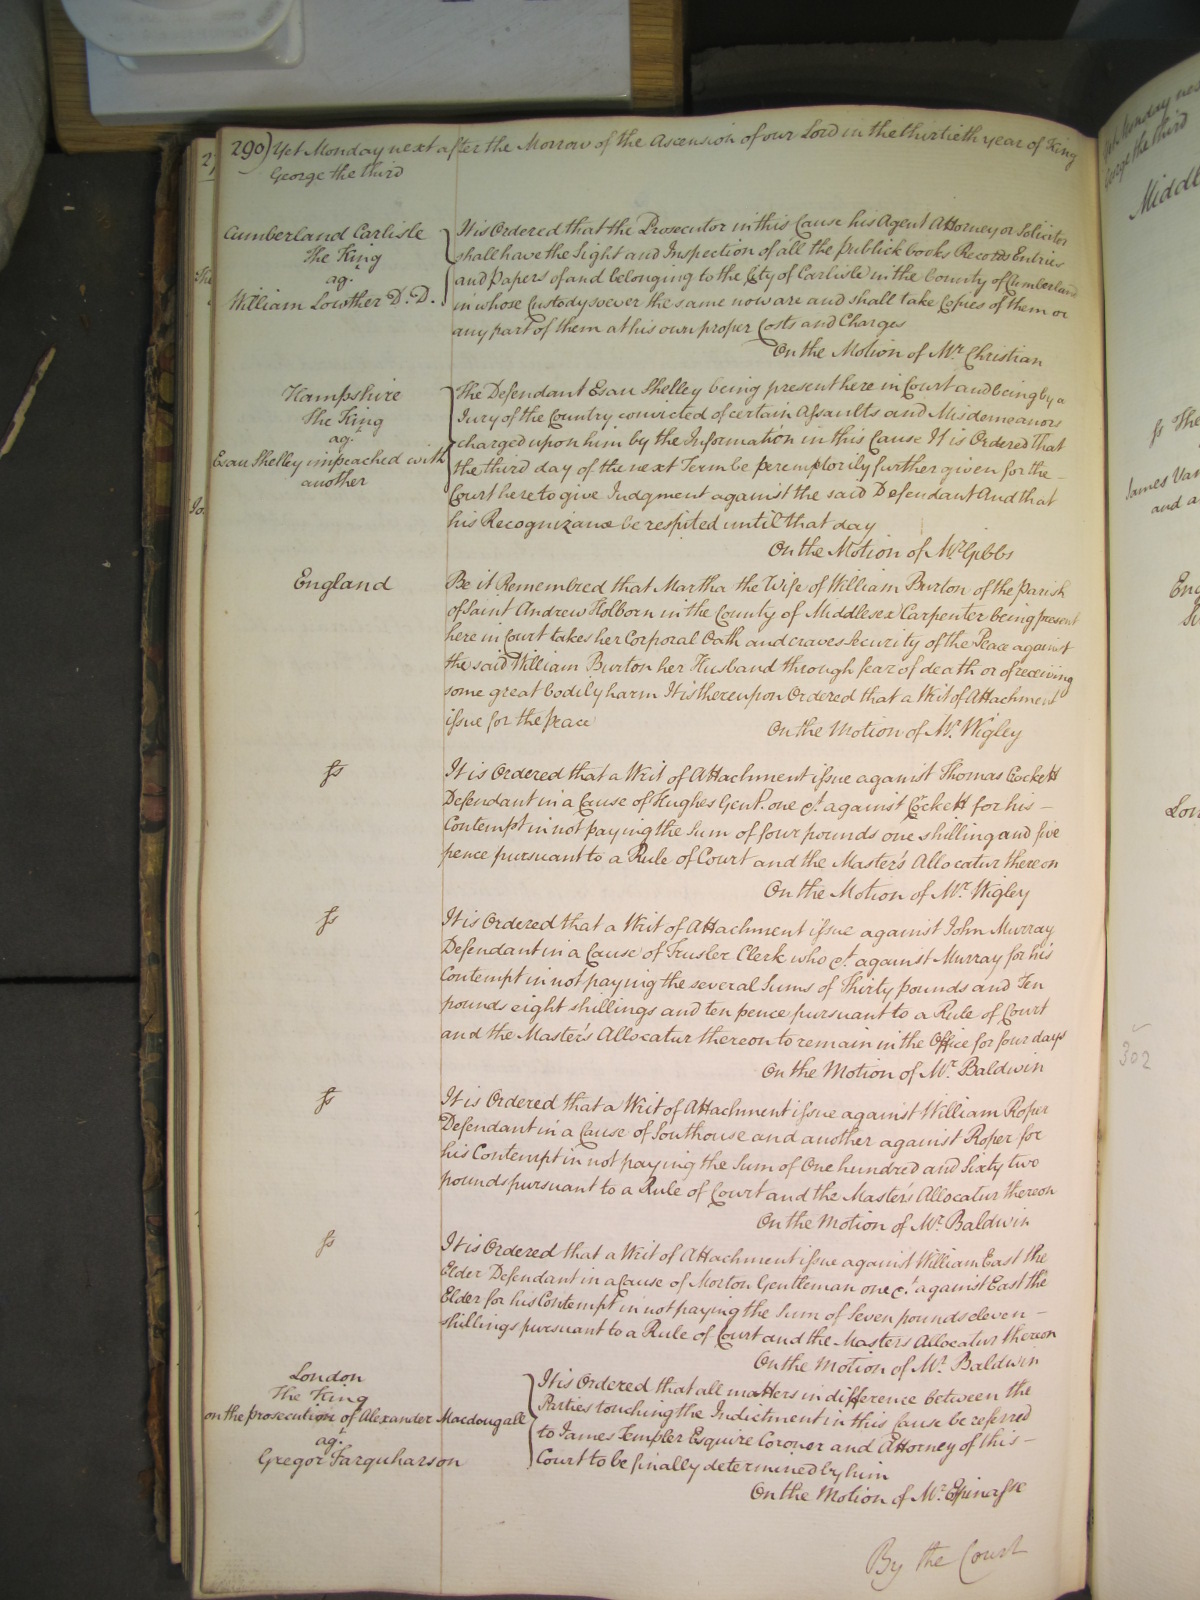 290) Yet Monday next after the Morrow of the Ascension of our Lord in the thirtieth year of King
George the third
Cumberland Carlisle
The King
agt.
William Lowther D.D.
It is Ordered that the Prosecutor in this Cause his Agent Attorney or Solicitor
shall have the Sight and Inspection of all the publick books Records Entries
and Papers of and belonging to the City of Carlisle in the County of Cumberland
in whose Custody soever the same now are and shall take Copies of them or
any part of them at his own proper Costs and Charges
On the Motion of Mr. Christian
Hampshire
The King
agt.
Esau Shelley impeached with
another
The Defendant Esau Shelley being present here in Court and being by a
Jury of the Country convicted of certain Assaults and Misdemeanors
charged upon him by the Information in this Cause It is Ordered That
the third day of the next Term be peremptorily further given for the
Court here to give Judgment against the said Defendant And that
his Recognizance be respited until that day
On the Motion of Mr. Gibbs
England
Be it Remembred that Martha the Wife of William Burton of the Parish
of Saint Andrew Holborn in the County of Middlesex Carpenter being present
here in Court takes her Corporal Oath and craves Security of the Peace against
the said William Burton her Husband through fear of death or of receiving
some great bodily harm It is thereupon Ordered that a Writ of Attachment
issue for the peace
On the Motion of Mr. Wigley
ss
It is Ordered that a Writ of Attachment issue against Thomas Cockett
Defendant in a Cause of Hughes Gent. one &c. against Cockett for his
Contempt in not paying the Sum of four pounds one shilling and five
pence pursuant to a Rule of Court and the Master's Allocatur thereon
On the Motion of Mr. Wigley
ss
It is Ordered that a Writ of Attachment issue against John Murray
Defendant in a Cause of Trusler Clerk who &c. against Murray for his
Contempt in not paying the several Sums of Thirty pounds and Ten
pounds eight shillings and ten pence pursuant to a Rule of Court
and the Master's Allocatur thereon to remain in the Office for four days
On the Motion of Mr. Baldwin
ss
It is Ordered that a Writ of Attachment issue against William Roper
Defendant in a Cause of Southouse and another against Roper for
his Contempt in not paying the Sum of One hundred and Sixty two
pounds pursuant to a Rule of Court and the Master's Allocatur thereon
On the Motion of Mr. Baldwin
ss
It is Ordered that a Writ of Attachment issue against William East the
Elder Defendant in a Cause of Morton Gentleman one &c. against East the
Elder for his Contempt in not paying the Sum of Seven pounds eleven
shillings pursuant to a Rule of Court and the Masters Allocatur thereon
On the Motion of Mr. Baldwin
London
The King
on the prosecution of Alexander Macdougall
agt.
Gregor Farquharson
It is Ordered that all matters in difference between the
Parties touching the Indictment in this Cause be referred
to James Templer Esquire Coroner and Attorney of this
Court to be finally determined by him
On the Motion of Mr. Espinasse
By the Court
Middl
ss The
James Van
and a
Eng
Lon
302